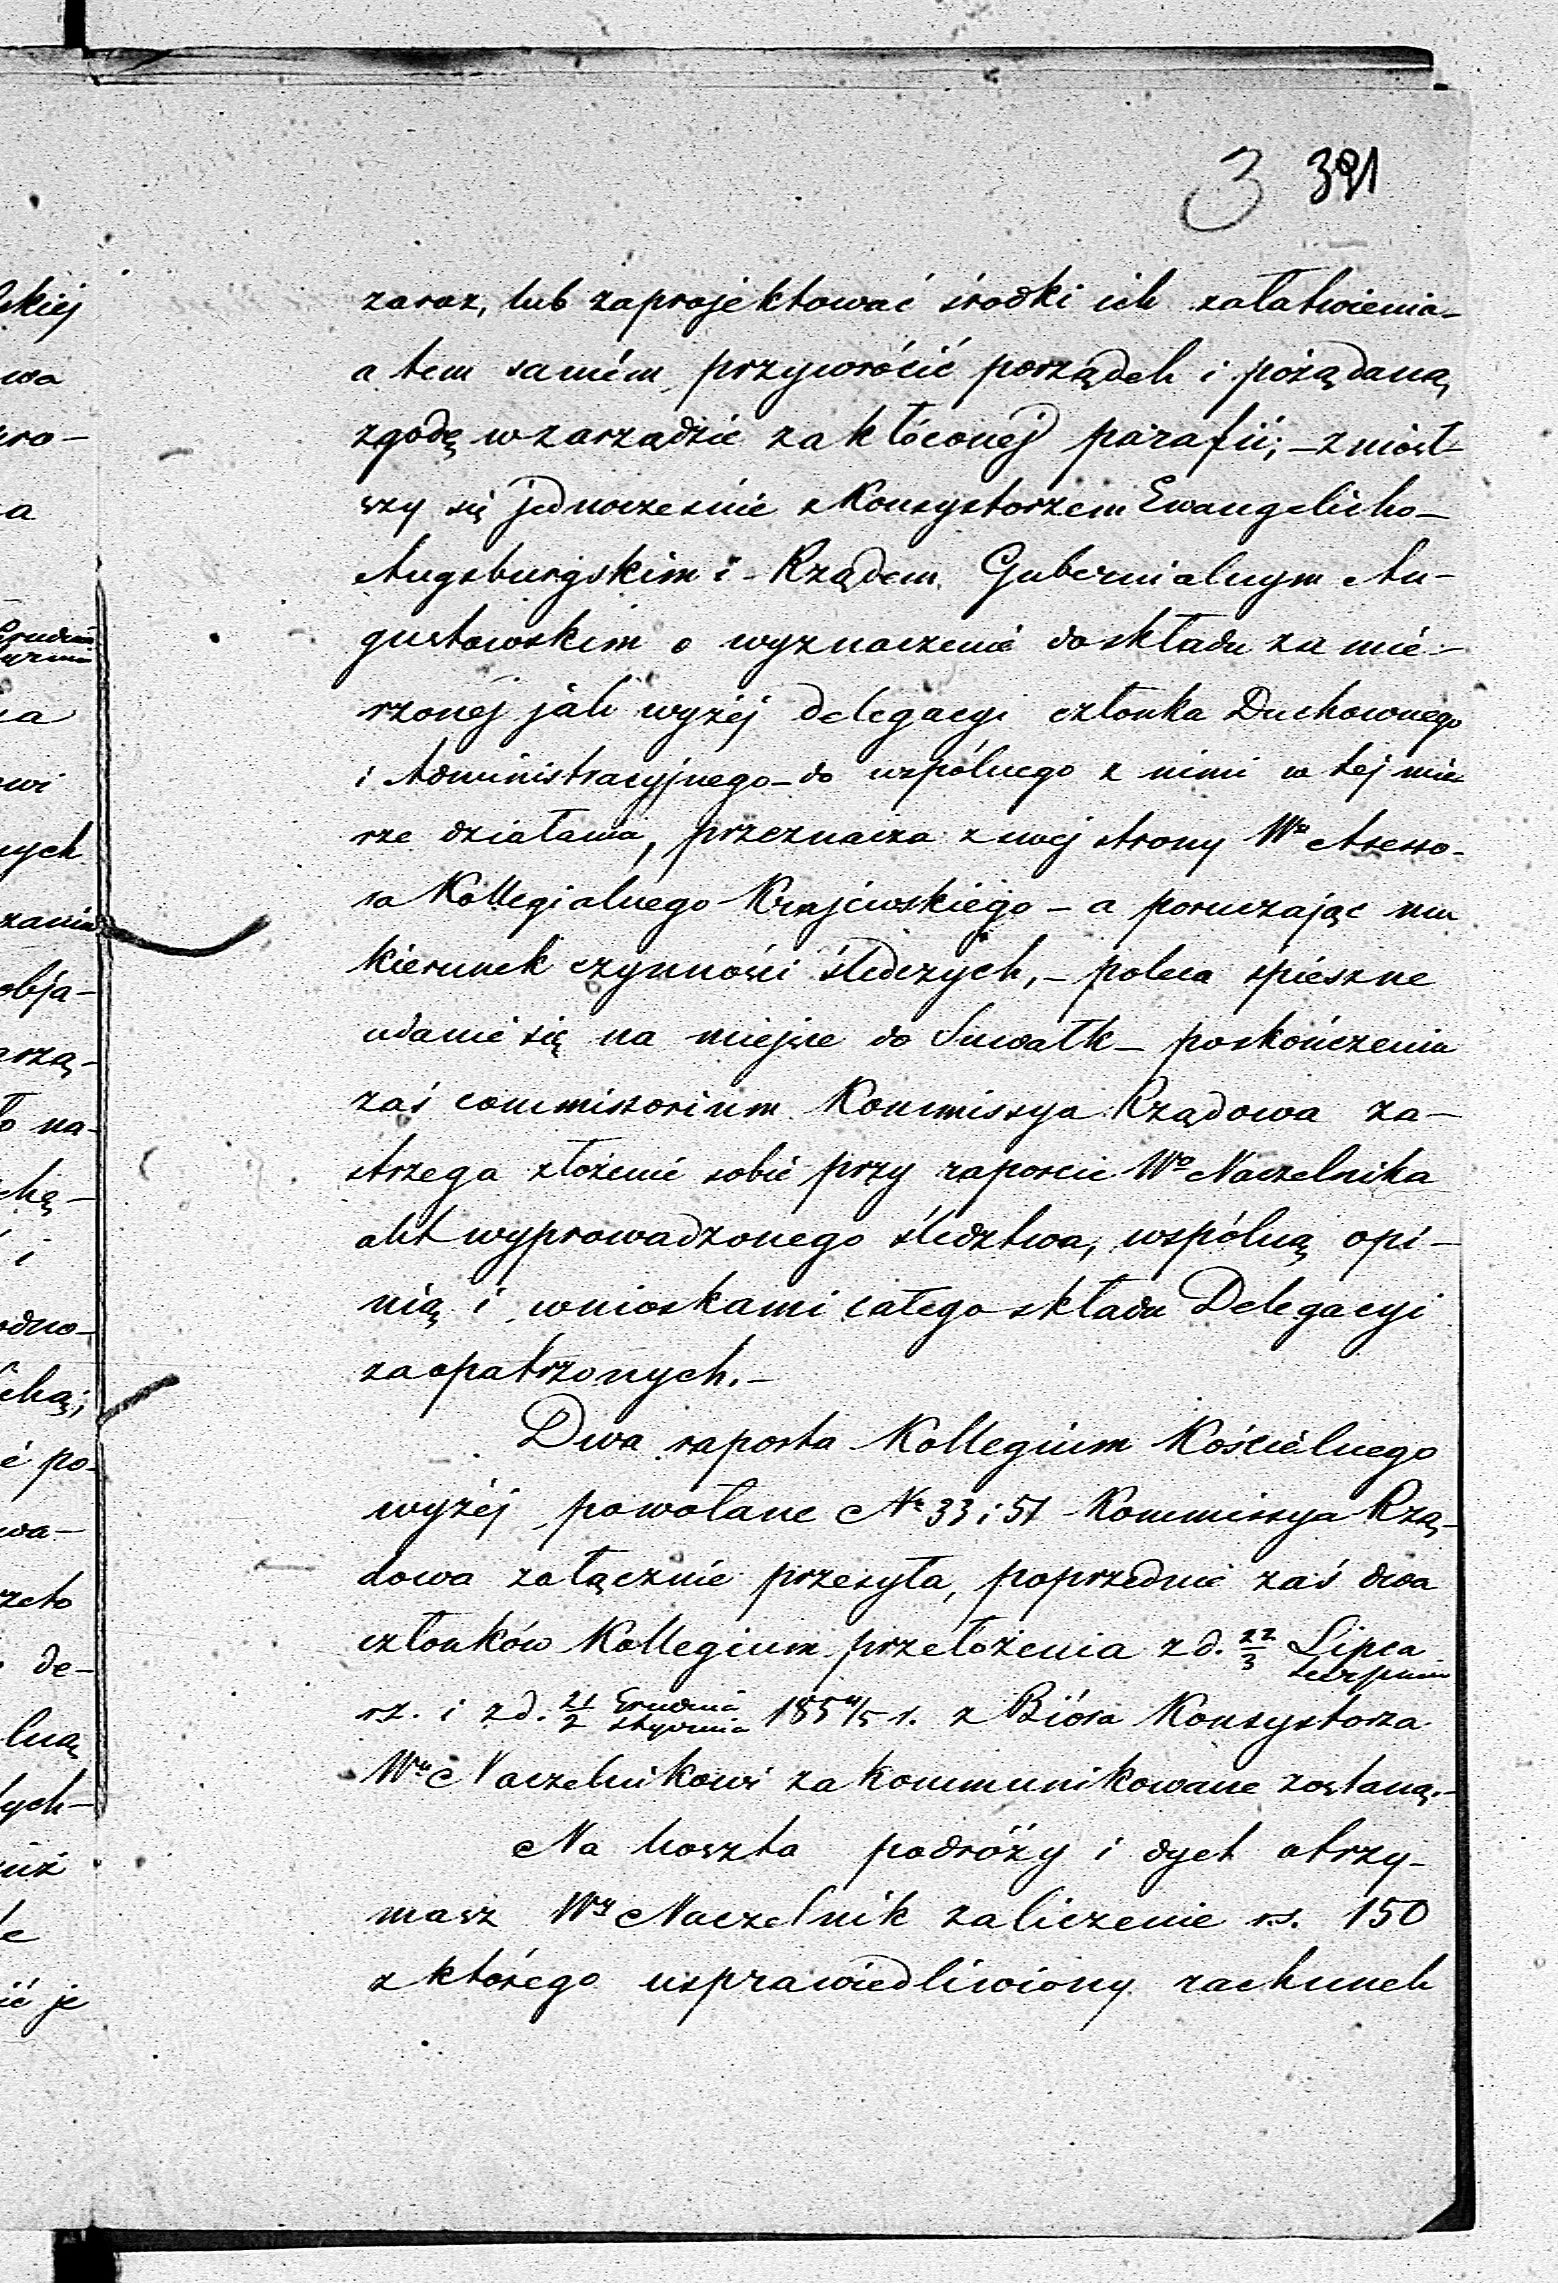 3 391
zaraz, lub zaprojektować środki ich załatwienia –
a tem samém przywrócić porządek i pożądaną
zgodę w zarządzie zakłóconej parafii; – zniósł-
szy się jednocześnie z Konsystorzem Ewangelicko –
Augsburgskim i Rządem Gubernialnym Au-
gustowskim o wyznaczenie do składu zamie-
rzonéj jak wyżéj delegacyi członka Duchownego
i Administracyjnego – do wspólnego z nimi w tej mie-
rze działania, przeznacza z swej strony Wo Assesso-
ra Kollegialnego Krajewskiégo – a poruczając mu
kierunek czynności śledczych, – poleca spieszne
udanie się na miejsce do Suwałk – po skończeniu
zaś commissorium Kommissya Rządowa za-
strzega złożenie sobie przy raporcie Wo Naczelnika
akt wyprowadzonego śledztwa, wspólną opi-
nią i wnioskami całego składu Delegacyi
zaopatrzonych. –
Dwa raporta Kollegium Kościelnego
wyżéj powołane Nr 33 i 51 Kommissya Rzą-
dowa załącznie przesyła, poprzednie zaś dwa
członków Kollegium przełożenia z d. 22/3 Lipca/Sierpnia
r.z. i z d. 21/2 Grudnia/Stycznia 1854/5 r. z Bióra Konsystorza
Wu Naczelnikowi zakommunikowane zostaną. –
Na koszta podróży i dyet otrzy-
masz Wy Naczelnik zaliczenie rs. 150
z którego usprawiedliwiony rachunek